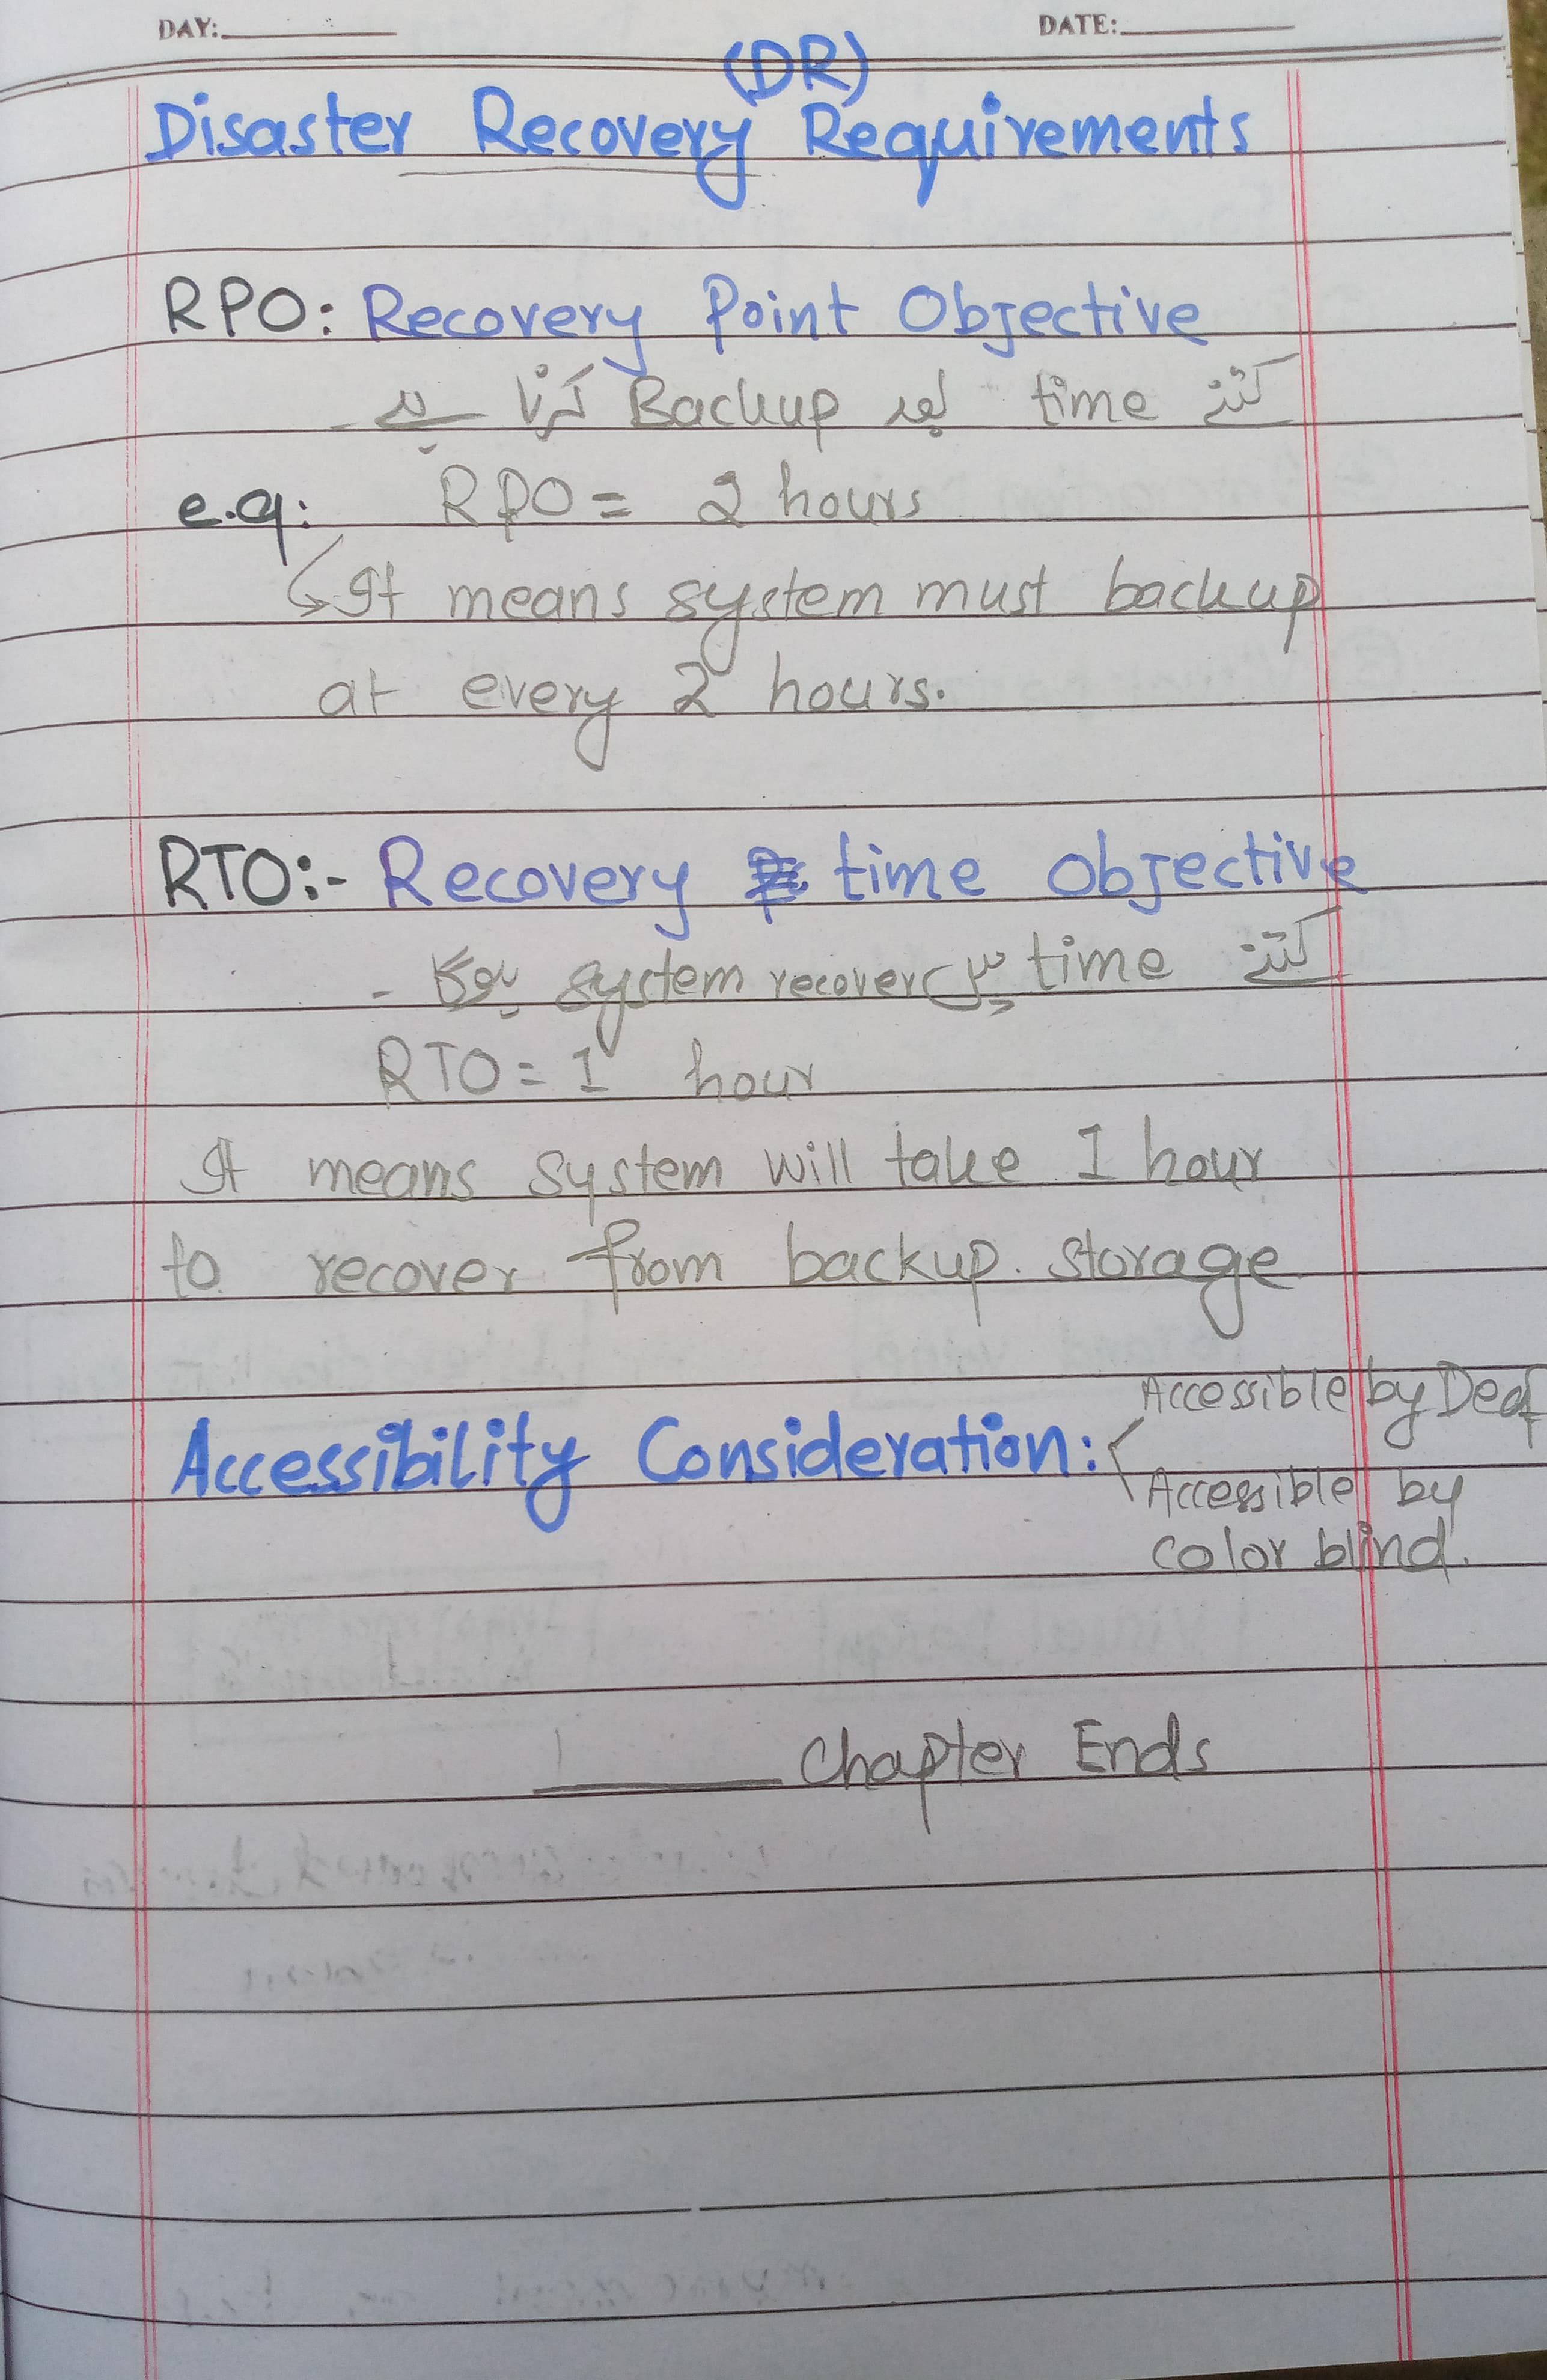 DAY: DATE:
(DR)
Disaster Recovery Requirements
RPO: Recovery Point Objective
کتنے time بعد Backup کرنا ہے۔
e.g: RPO = 2 hours
It means system must backup
at every 2 hours.
RTO:- Recovery time Objective
کتنے time میں system recover ہوگا۔
RTO = 1 hour
It means system will take 1 hour
to recover from backup storage
Accessible by Deaf
Accessibility Consideration:
Accessible by
color blind.
Chapter Ends